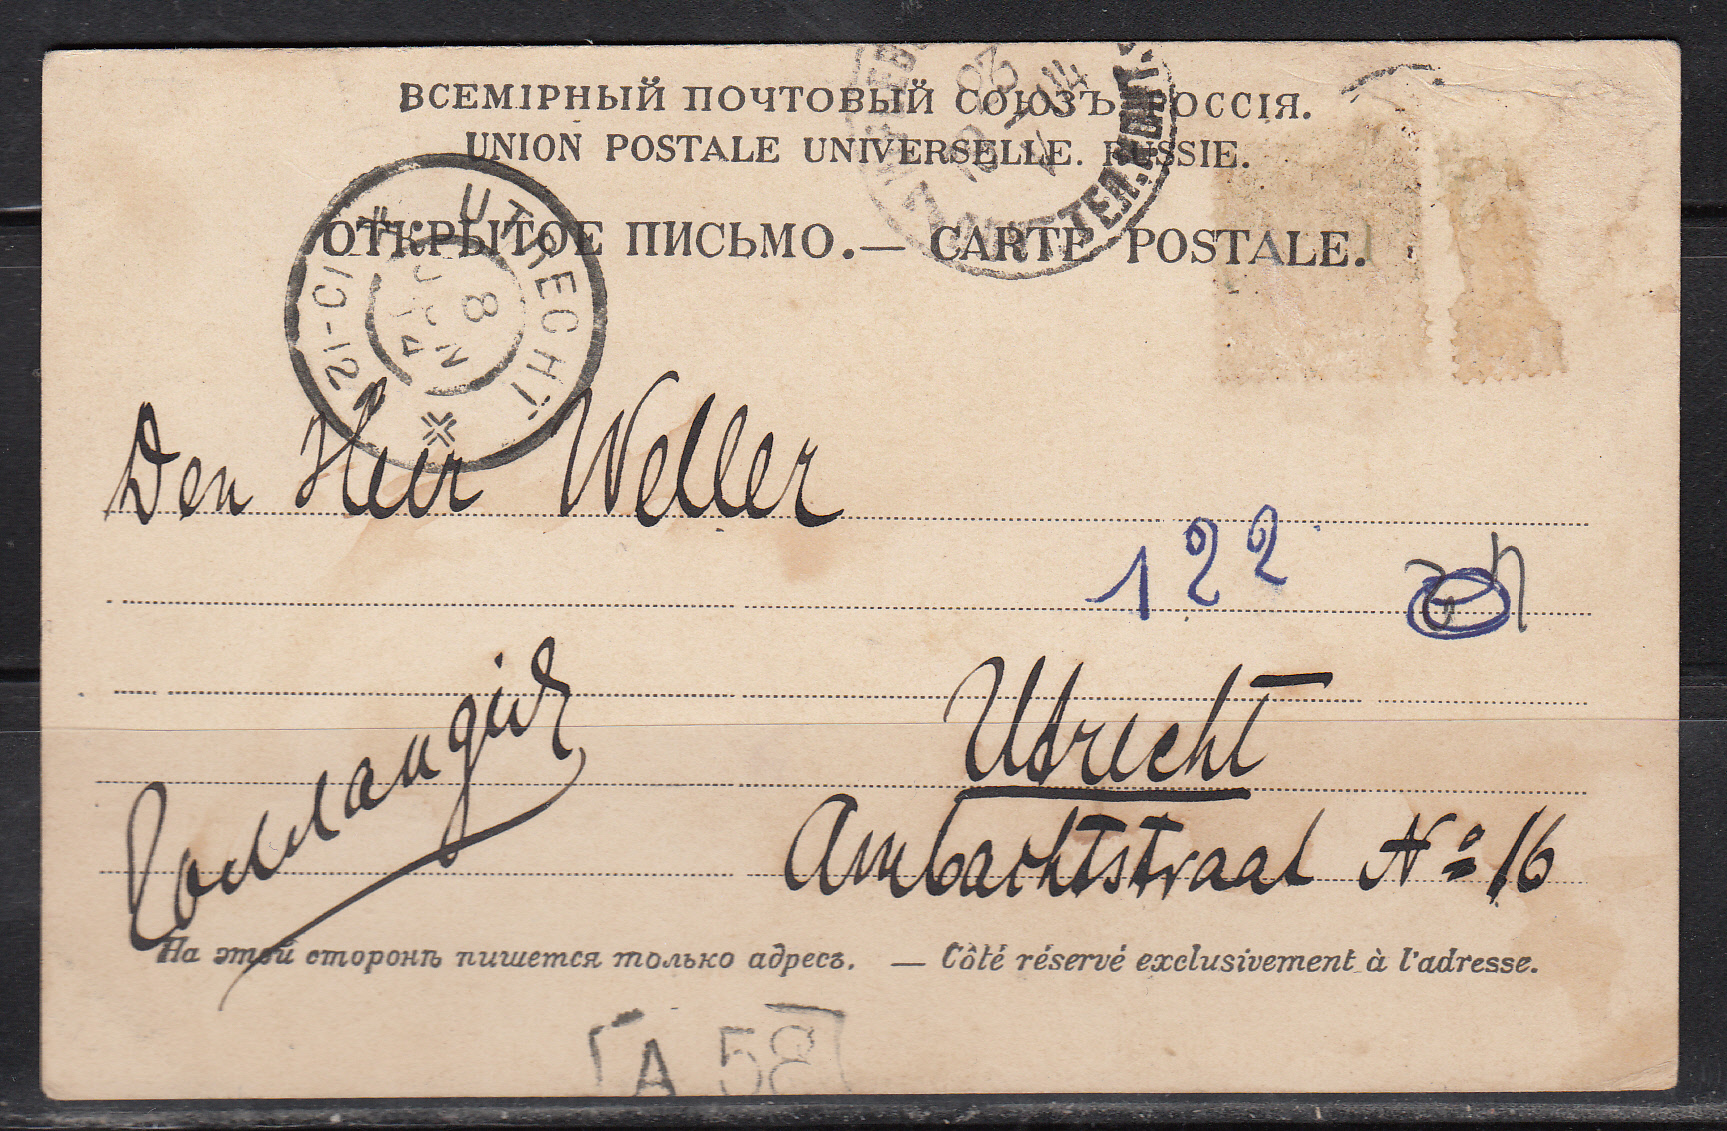 ВСЕМІРНЫЙ ПОЧТОВЫЙ СОЮЗЪ. РОССІЯ.
UNION POSTALE UNIVERSELLE. RUSSIE.
ОТКРЫТОЕ ПИСЬМО.— CARTE POSTALE.
UTRECHT
8 JUN
Den Heer Weller
122
Utrecht
Ambachtstraat No 16
На этой сторонѣ пишется только адресъ. — Côté réservé exclusivement à l'adresse.
A 58